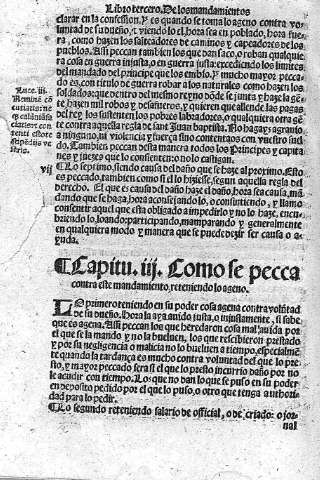 Libro tercero. De los mandamientos
clarar en la confession. Y es quando se toma lo ageno contra vo-
luntad de su dueño, & viendo lo el. hora sea en poblado, hora fue
ra, como hazen los salteadores de caminos y capeadores de los
pueblos. Assi peccan tambien los que dan saco, o roban qualquie
ra cosa en guerra injusta, o en guerra justa: excediendo los limites
del mandado del principe que los embio. Y mucho mayor pecca-
do es, con titulo de guerra robar a los naturales como hazen los
soldados: que dentro del mesmo reyno donde se junta y haze la gē
te hazen mil robos y desafueros, y quieren que allende las pagas
del rey los sustenten los pobres labradores, o qualquiera otra gē
te contra aquella regla de sant Juan baptista. No hagays agrauio
a ninguno, ni violencia y fuerça sino contentaos con vuestro suel
do. Tambien peccan desta manera todos los Principes y capita
nes y juezes que lo consienten: o no lo castigan.
Luce. iij.
vij
¶ Lo septimo, siendo causa del daño que se haze al proximo. Esto
es peccado, tambien como si el lo hiziesse, segun aquella regla del
derecho. El que es causa del daño haze el daño, hora sea causa, mā
dando que se haga, hora aconsejando lo, o consintiendo, y llamo
consentir aquel que esta obligado a impedirlo y no lo haze, encu-
briendo lo, loando: participando, mamparando y generalmente
en qualquiera modo y manera que se puede dezir ser causa o a-
yuda.
¶ Capitu. iij. Como se pecca
contra este mandamiento, reteniendo lo ageno.
LO primero teniendo en su poder cosa agena contra voluntad
de su dueño. Hora la aya auido justa, o injustamente, si sabe
que es agena. Assi peccan los que heredaron cosa mal auida por
el que se la mando y no la bueluen, los que rescibieron prestado
y por su negligencia o malicia no lo bueluen a tiempo, especialmē
te quando la tardança es mucho contra voluntad del que lo pre-
sto, y mayor peccado sera si el que lo presto incurrio daño por no
le acudir con tiempo. Los que no dan lo que se puso en su poder
en deposito pedido por el que lo puso, o otro que tenga authori-
dad para lo pedir.
¶ Lo segundo reteniendo salario de official, o de criado: o jor-
nal